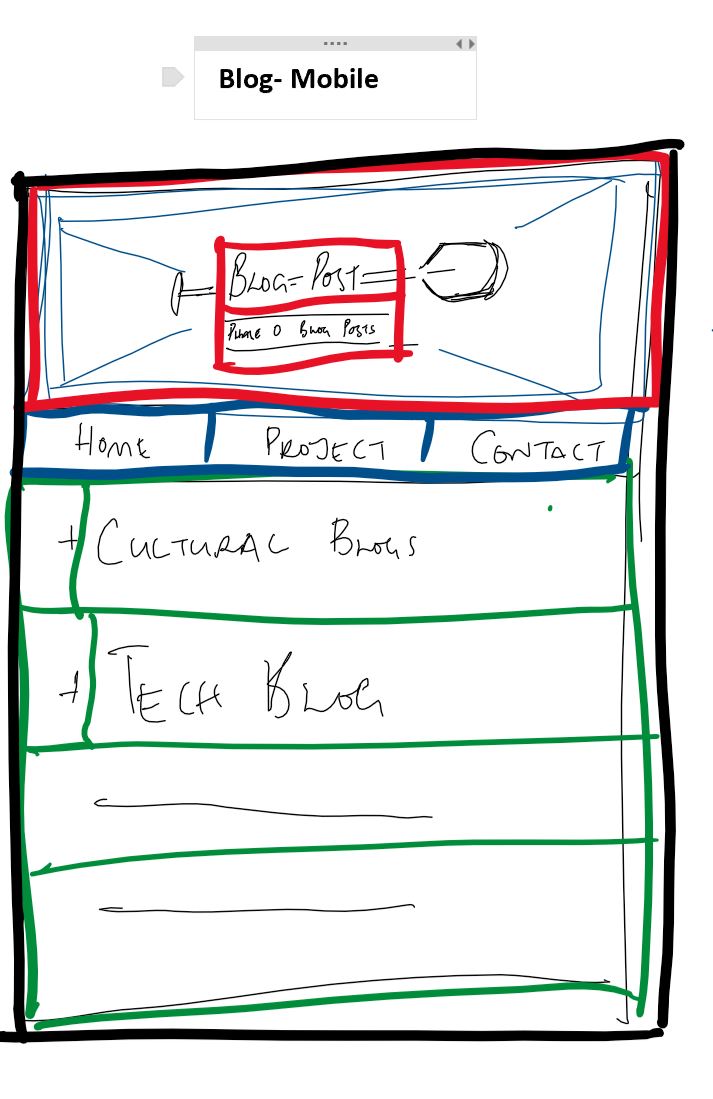 Blog- Mobile
BLOG- POST
PHASE 0 BLOG POSTS
HOME PROJECT CONTACT
+ CULTURAL BLOGS
+ TECH BLOG